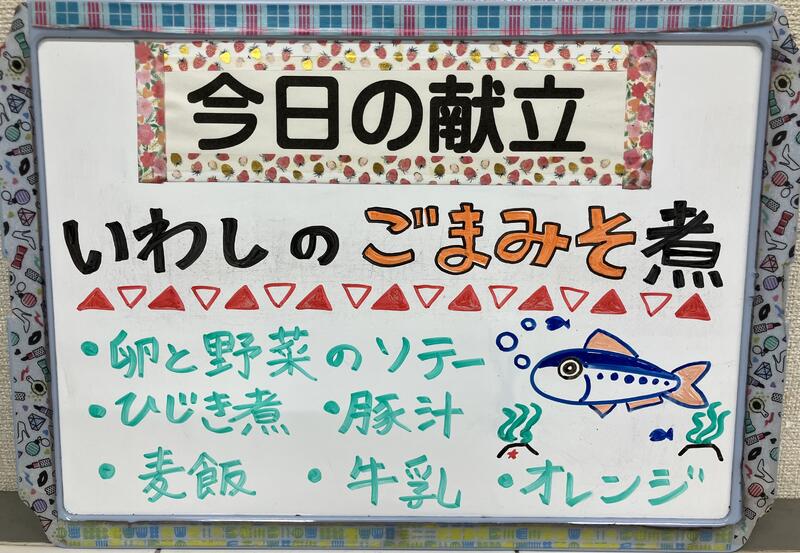 今日の献立
いわしのごまみそ煮
・卵と野菜のソテー
・ひじき煮 ・豚汁
・麦飯 ・牛乳 ・オレンジ